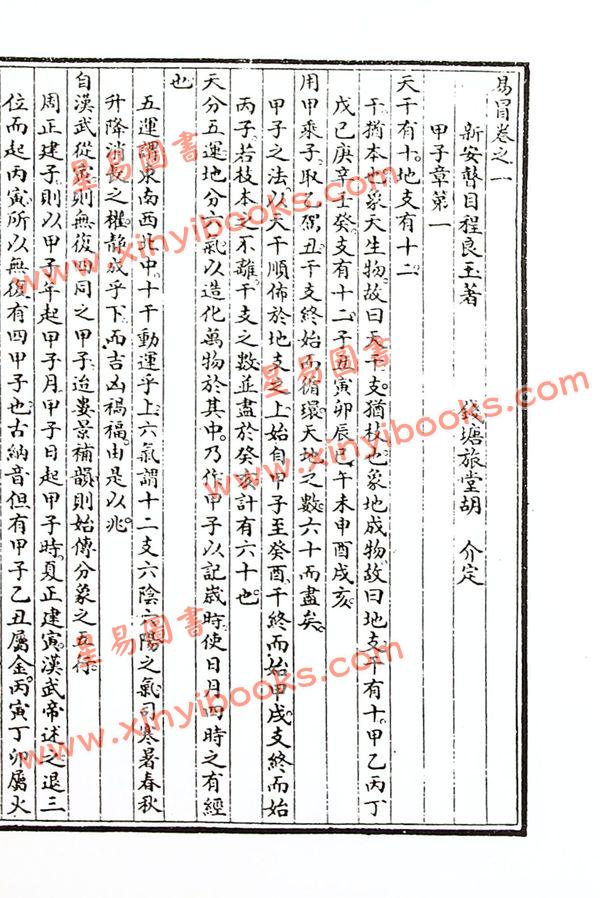 易冒卷之一
新安瞽目程良玉著 錢塘旅堂胡 介定
甲子章第一
天干有十地支有十二
干猶本也象天生物故曰天干支猶枝也象地成物故曰地支干有十甲乙丙丁
戊己庚辛壬癸支有十二子丑寅卯辰巳午未申酉戌亥
用甲乘子取乙駕丑干支終始而循環天地之數六十而盡矣
甲子之法以天干順佈於地支之上始自甲子至癸酉干終而始甲戌支終而始
丙子若枝本之不離干支之數並盡於癸亥計有六十也
天分五運地分六氣以造化萬物於其中乃作甲子以記歲時使日月四時之有經
也
五運謂東南西北中十干動運乎上六氣謂十二支六陰六陽之氣司寒暑春秋
升降消長之權靜成乎下而吉凶禍福由是以兆
自漢武從寅則無復四同之甲子迨婁景補韻則始傳分象之五行
周正建子則以甲子年起甲子月甲子日起甲子時夏正建寅漢武帝述之退三
位而起丙寅所以無復有四甲子也古納音但有甲子乙丑屬金丙寅丁卯屬火
星易圖書
www.xinyibooks.com
星易圖書
www.xinyibooks.com
星易圖書
www.xinyibooks.com